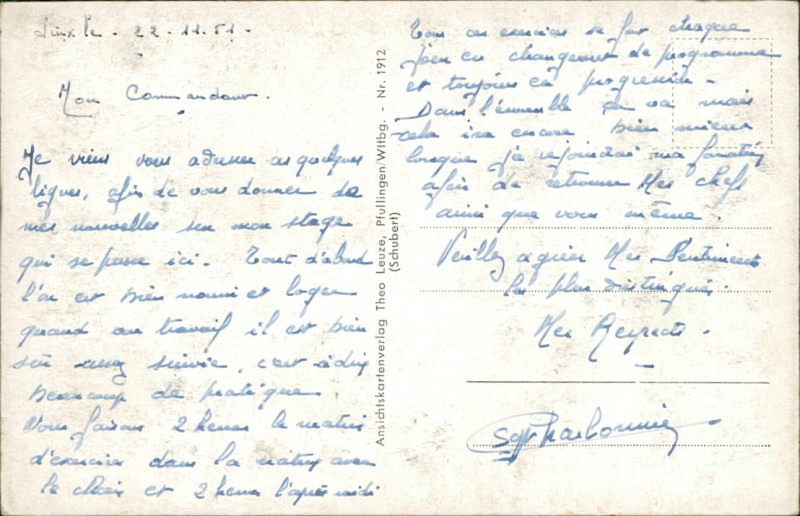 22-11-51-
Mon Commandant.
Je viens vous adresser ces quelques
lignes, afin de vous donner de
mes nouvelles sur mon stage
qui se passe ici. Tout d'abord
l'on est bien nourri et loger
quand au travail il est bien
sûr assez suivie, c'est à dire
beaucoup de pratique
Nous faisons 2 heures le matin
d'exercice dans la nature avec
le chien et 2 heures l'après midi
Ansichtskartenverlag Theo Leuze, Pfullingen/Wttbg. - Nr. 1912
(Schubert)
Tous ces exercices se font chaque
jour en changeant de programme
et toujours en progressin-
Dans l'ensemble ça va mais
cela ira encore bien mieux
lorsque je rejoindrai ma
afin de retrouver Mes chefs
ainsi que vous même.
Veuillez agréer Mes Sentiments
les plus distingués.
Mes Respects.
Sgt Charbonnier